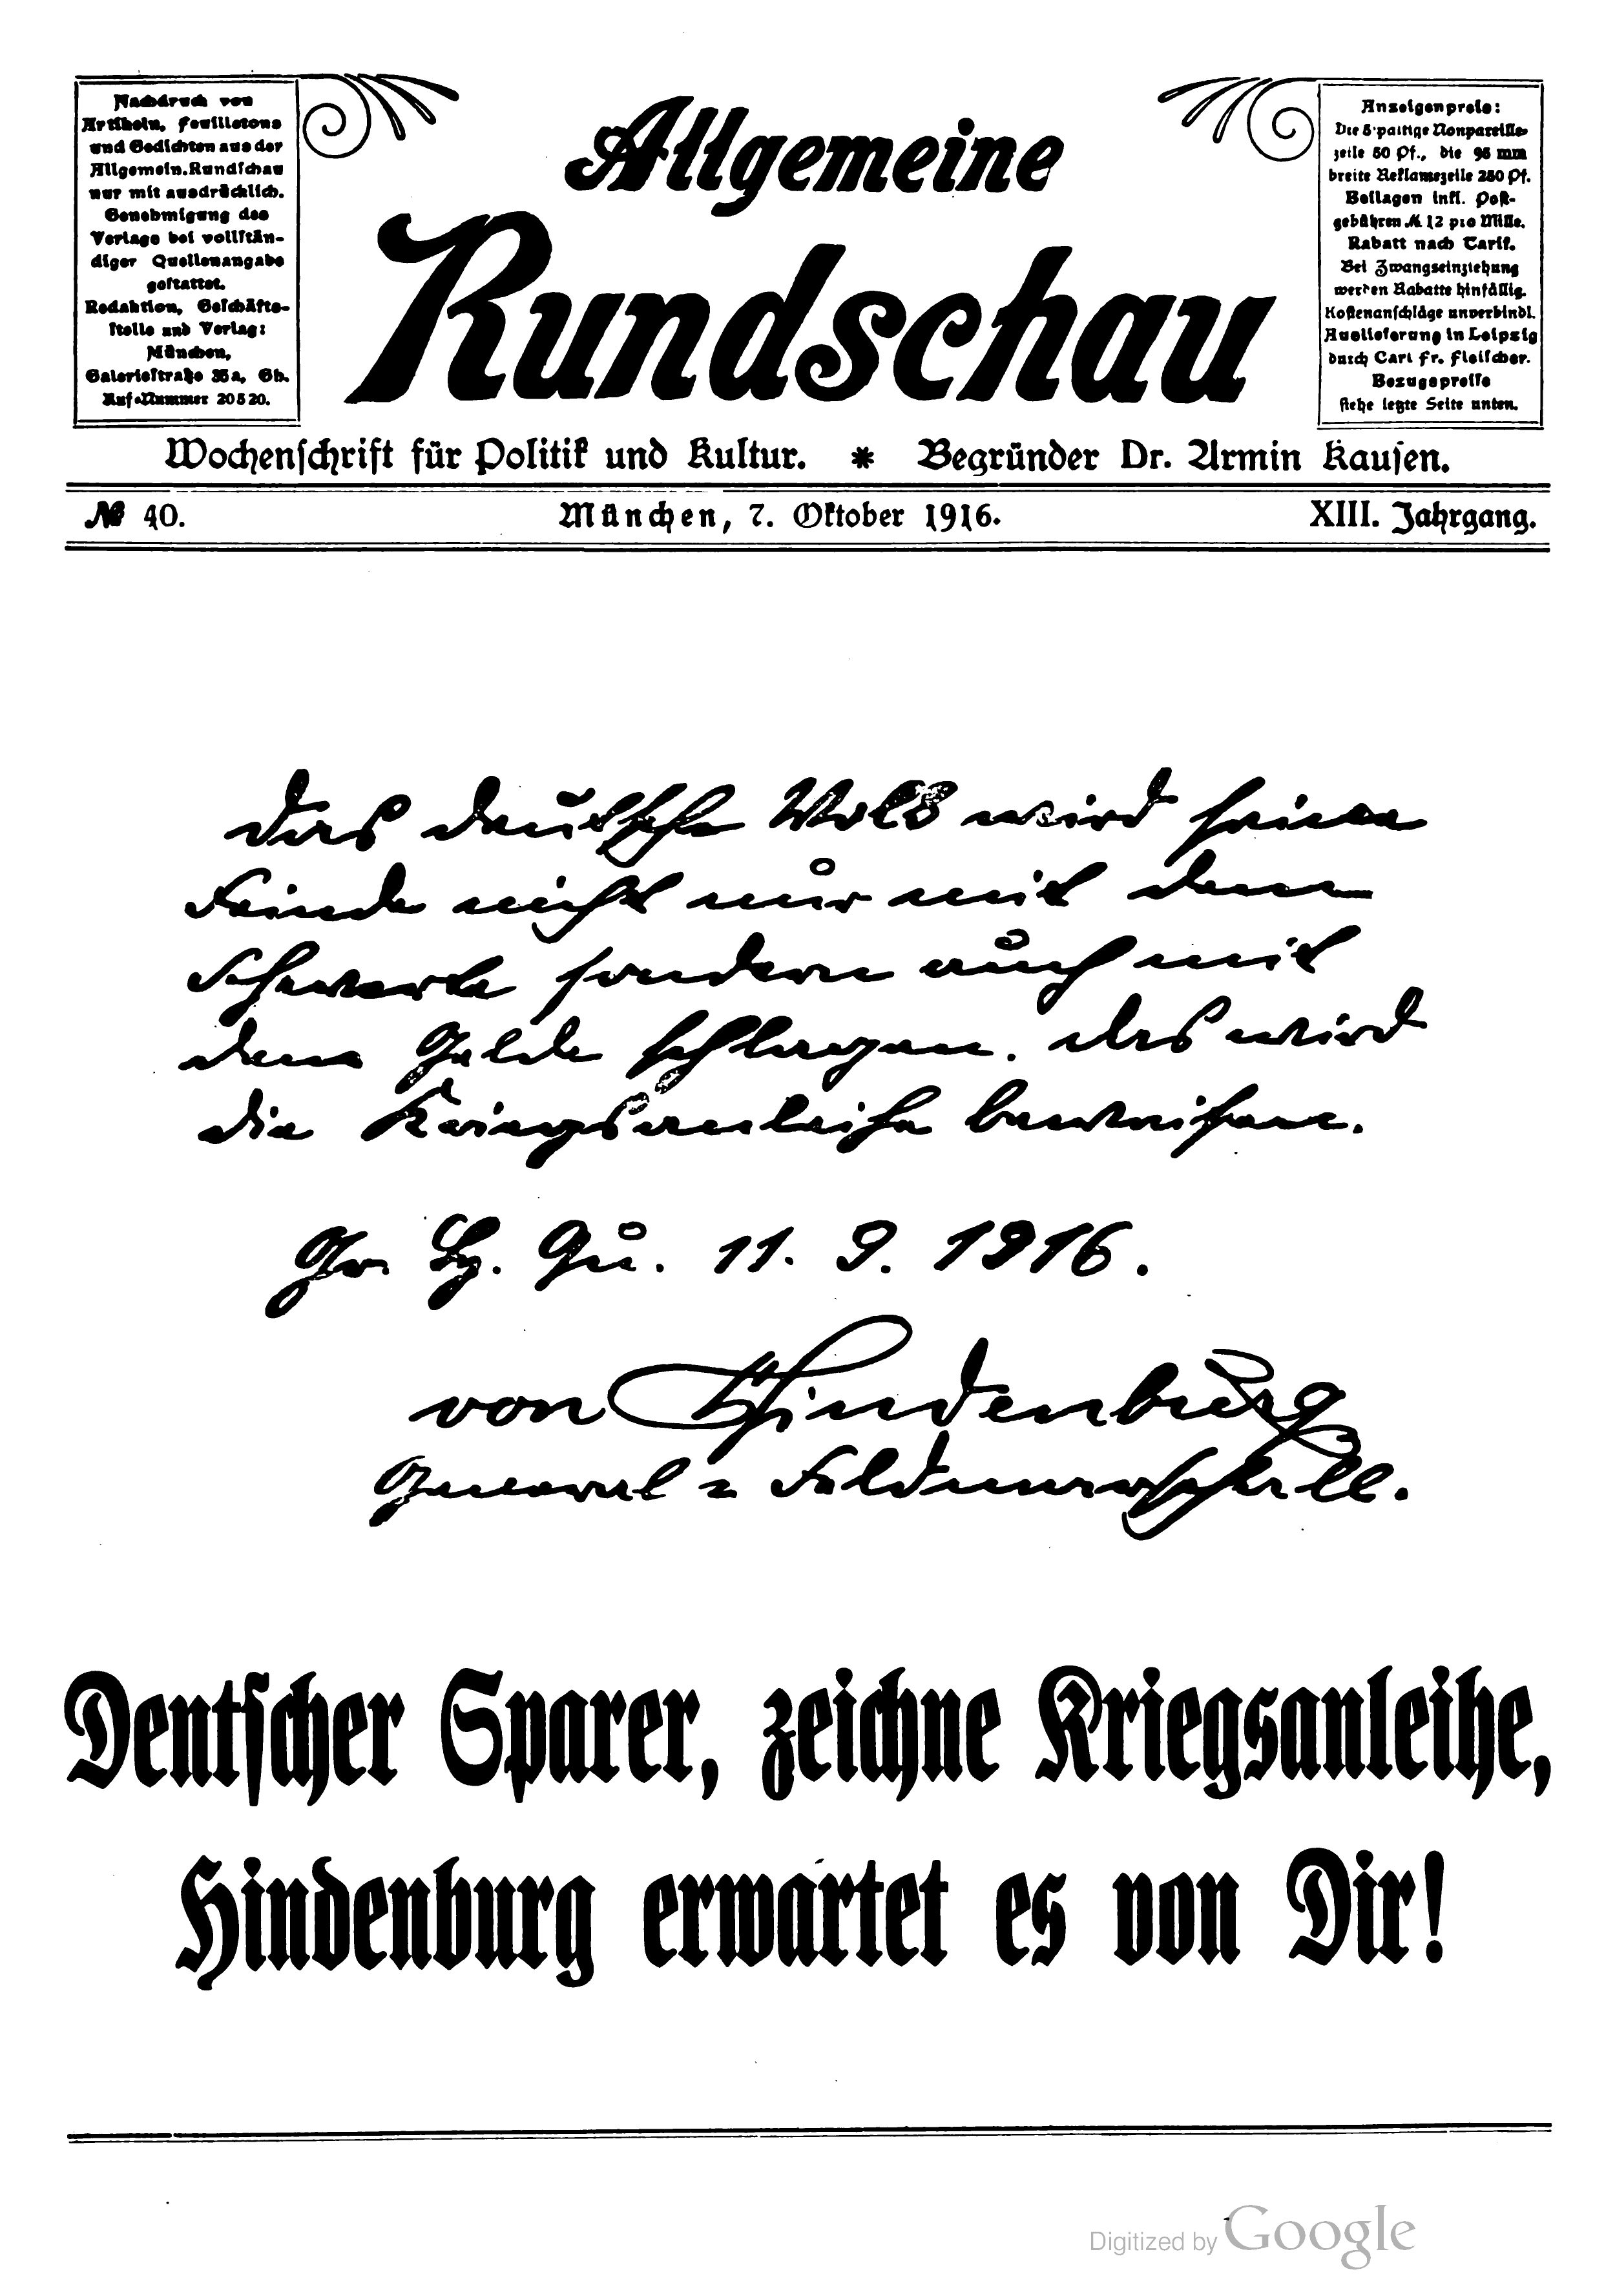 Nachdruck von
Artikeln, Feuilletons
und Gedichten aus der
Allgemein. Rundschau
nur mit ausdrücklich.
Genehmigung des
Verlags bei vollstän-
diger Quellenangabe
gestattet.
Redaktion, Geschäfts-
stelle und Verlag:
München,
Galeriestraße 35a, Gh.
Ruf-Nummer 20520.
Allgemeine
Rundschau
Anzeigenpreis:
Die 5spaltige Nonpareille-
zeile 50 Pf., die 95 mm
breite Reklamezeile 250 Pf.
Beilagen inkl. Post-
gebühren M 12 pro Mille.
Rabatt nach Tarif.
Bei Zwangseinziehung
werden Rabatte hinfällig.
Kostenanschläge unverbindl.
Auslieferung in Leipzig
durch Carl Fr. Fleischer.
Bezugspreise
siehe letzte Seite unten.
Wochenschrift für Politik und Kultur. * Begründer Dr. Armin Kausen.
№ 40. München, 7. Oktober 1916. XIII. Jahrgang.
Das deutsche Volk wird seine
Feinde nicht nur mit dem
Schwerte sondern auch mit
dem Gelde schlagen. Das wird
die Kriegsanleihe beweisen.
Gr. Hq. Qu. 11. 9. 1916.
von Hindenburg
General=Feldmarschall.
Deutscher Sparer, zeichne Kriegsanleihe,
Hindenburg erwartet es von Dir!
Digitized by Google